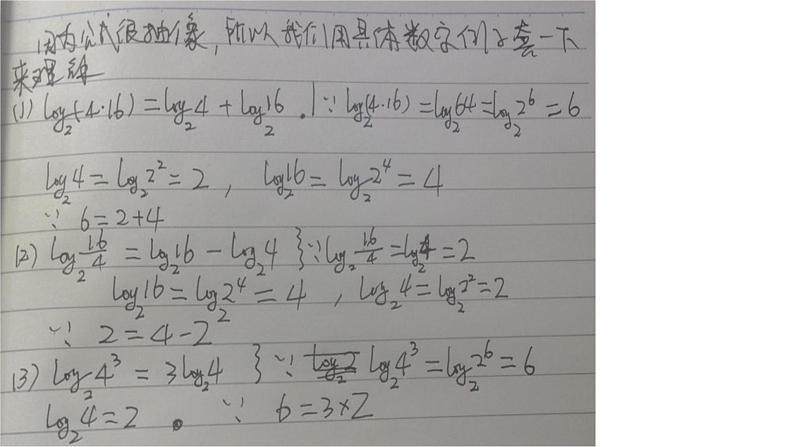 因为公式很抽像,所以我们用具体数字例子套一下
来理解
(1) log₂(4·16) = log₂4 + log₂16 . ∵ log₂(4·16) = log₂64 = log₂2⁶ = 6
log₂4 = log₂2² = 2 , log₂16 = log₂2⁴ = 4
∵ 6 = 2+4
(2) log₂16/4 = log₂16 - log₂4 } ∵ log₂16/4 = log₂4 = 2
log₂16 = log₂2⁴ = 4 , log₂4 = log₂2² = 2
∵ 2 = 4 - 2
(3) log₂4³ = 3log₂4 } ∵ log₂4³ = log₂2⁶ = 6
log₂4 = 2 . ∵ 6 = 3×2